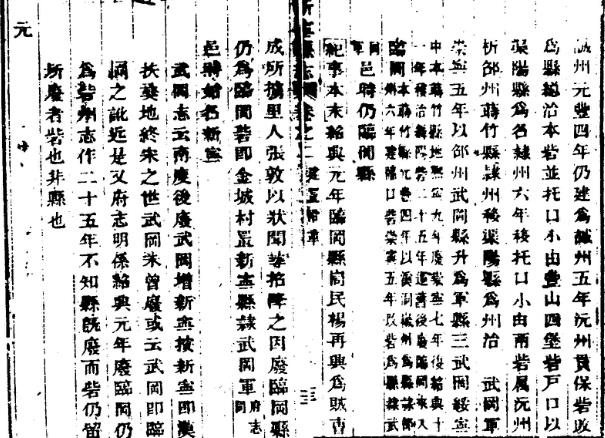 誠州元豐四年仍建爲誠州五年沅州貫保砦改
爲縣總治本砦並托口小由豐山四堡砦戶口以
渠陽縣爲名隸州六年移托口小由兩砦屬沅州
析邵州蒔竹縣隸州移渠陽縣爲州治 武岡軍
崇寧五年以邵州武岡縣升爲軍縣三武岡綏寧
本蒔竹縣地熙寧九年廢崇寧 年後紹興十
一年移治 陽砦二十五年還舊後廢臨岡來入
臨岡 本蒔竹縣元豐四年以溪洞徽州爲縣隸邵
州六年建臨口砦崇寧五年改砦爲縣隸武
岡軍 邑時仍臨岡縣
紀事本末紹興元年臨岡縣峒民楊再興爲賊
新寧縣志 卷之二 建置沿革 三
成所擒里人張敦以狀聞奉招降之因廢臨岡縣
仍爲臨岡砦即金城村置新寧縣隸武岡軍 府志同
邑時始名新寧
武岡志云南慶後廢武岡增新寧按新寧即漢
扶夷地終宋之世武岡未曾廢或云武岡即臨
岡之訛近是又府志明係紹興元年廢臨岡仍
爲砦州志作二十五年不知縣既廢而砦仍留
所廢者砦也非縣也
元